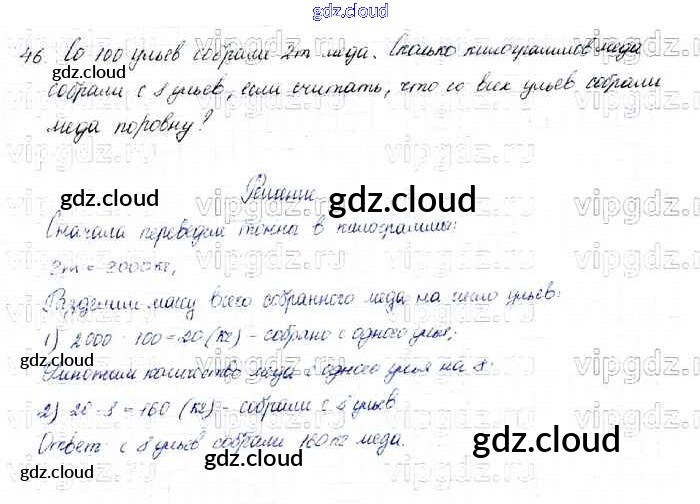 gdz.cloud
46. Со 100 ульев собрали 2т меда. Сколько килограммов меда
gdz.cloud
собрали с 8 ульев, если считать, что со всех ульев собрали
меда поровну?
vipgdz.ru
gdz.cloud
Решение
gdz.cloud vipgdz.ru
Сначала переведем тонны в килограммы:
2т = 2000кг,
vipgdz.ru
Разделим массу всего собранного меда на число ульев:
1) 2000 : 100 = 20 (кг) - собрано с одного улья;
gdz.cloud gdz.cloud vipgdz.ru
Умножим количество меда с одного улья на 8:
2) 20 · 8 = 160 (кг) - собрали с 8 ульев
Ответ: с 8 ульев собрали 160кг меда.
gdz.cloud gdz.cloud